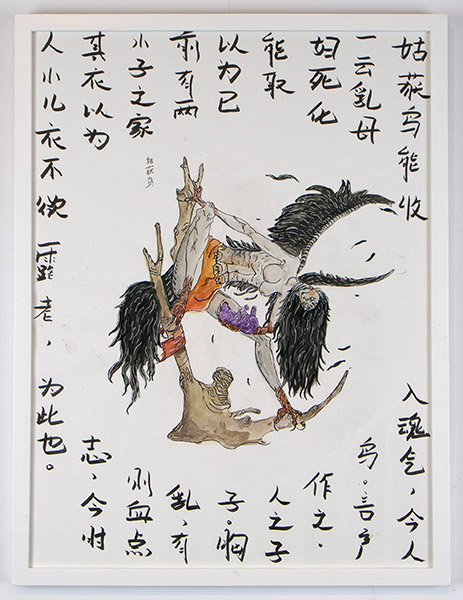 姑获鸟能收人魂气，今人
一云乳母鸟。言产
妇死化作之.
能取人之子
以为已子。胸
前有两乳，有
小子之家则血点
其衣以为志，今时
人小儿衣不欲露者，为此也。
姑获鸟